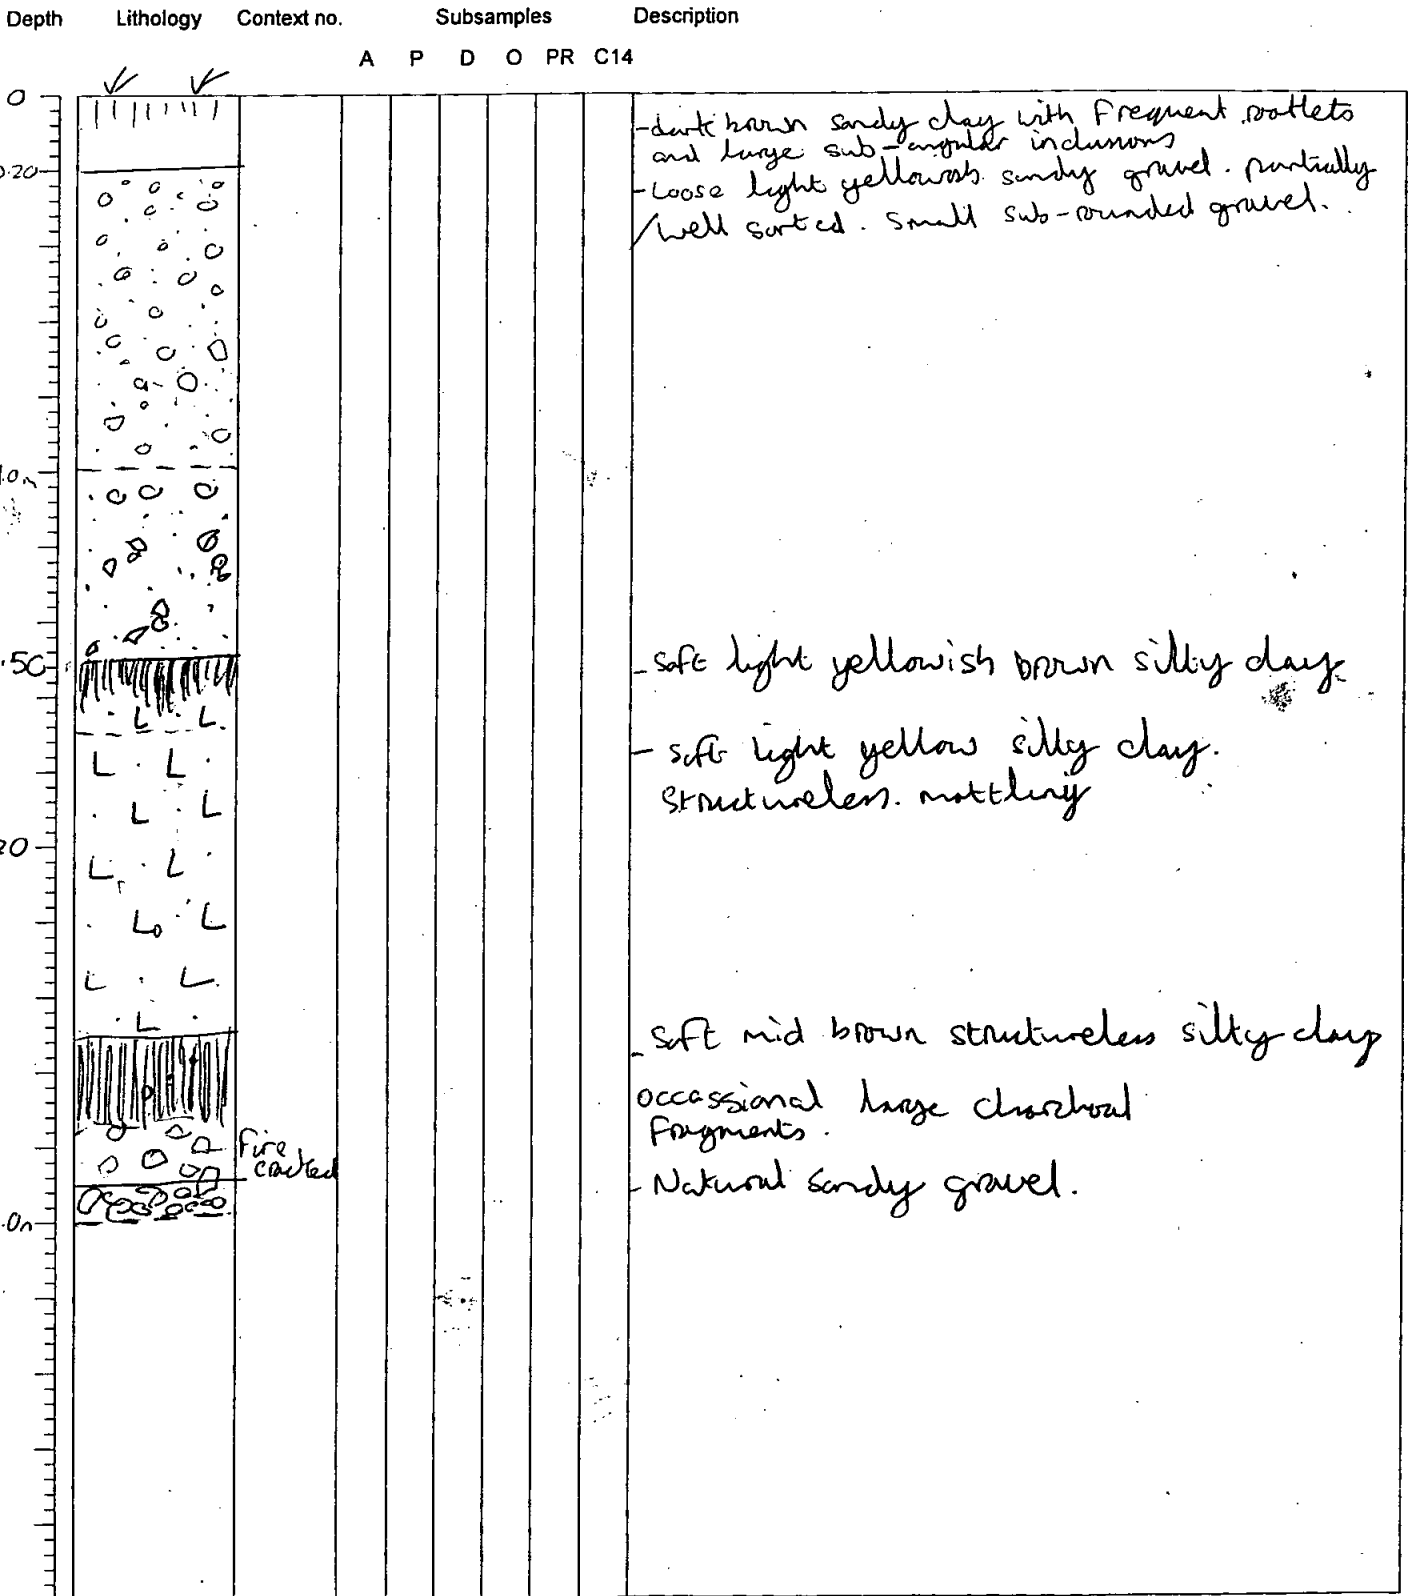 Depth Lithology Context no. Subsamples Description
A P D O PR C14
0
-dark brown sandy clay with Frequent rootlets
and large sub-angular inclusions
0.20
-Loose light yellowish sandy gravel. partially
/well sorted. Small sub-rounded gravel.
.0m
.50
-Soft light yellowish brown silty clay.
- soft light yellow silty clay.
Structureless. mottling
20
-Soft mid brown structureless silty clay
occassional large charchoal
Fragments.
Fire
cracked
-Natural sandy gravel.
.0m